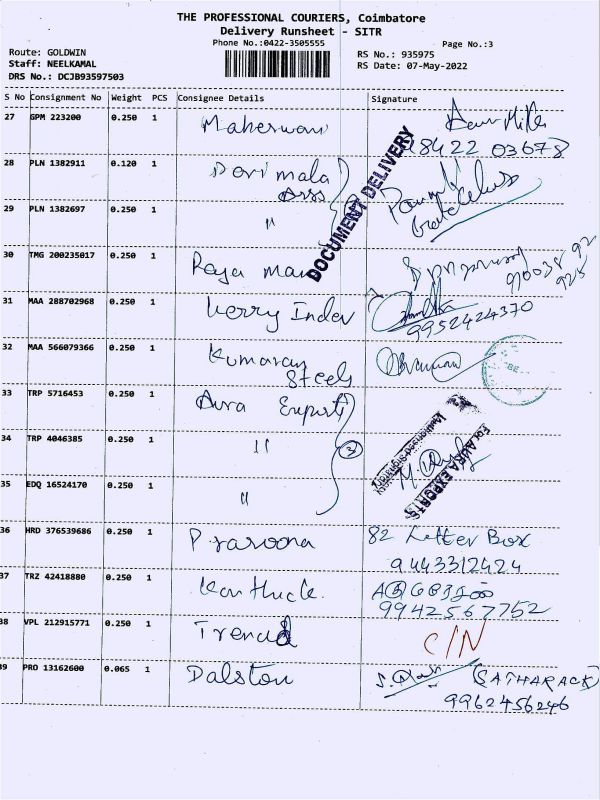 THE PROFESSIONAL COURIERS, Coimbatore
Delivery Runsheet - SITR
Phone No.:0422-3505555
Page No.:3
Route: GOLDWIN
Staff: NEELKAMAL
DRS No.: DCJB93597503
RS No.: 935975
RS Date: 07-May-2022
S No Consignment No Weight PCS Consignee Details Signature
27 GPM 223200 0.250 1
28 PLN 1382911 0.120 1 Devi mala
29 PLN 1382697 0.250 1 "
DOCUMENT DELIVERY
30 TMG 200235017 0.250 1 Raja
31 MAA 288702968 0.250 1 Kerry Indev
9952424370
32 MAA 566079366 0.250 1 Kumaran
Steels
33 TRP 5716453 0.250 1 Aura Export
34 TRP 4046385 0.250 1 "
35 EDQ 16524170 0.250 1 "
3
For AURA EXPORTS
Authorised Signatory
36 HRD 376539686 0.250 1 82 Letter Box
9443312424
37 TRZ 42418880 0.250 1 Karthick.
9942567752
38 VPL 212915771 0.250 1 Trend C/N
39 PRO 13162600 0.065 1 Dalston (SATHARACK)
9962456246